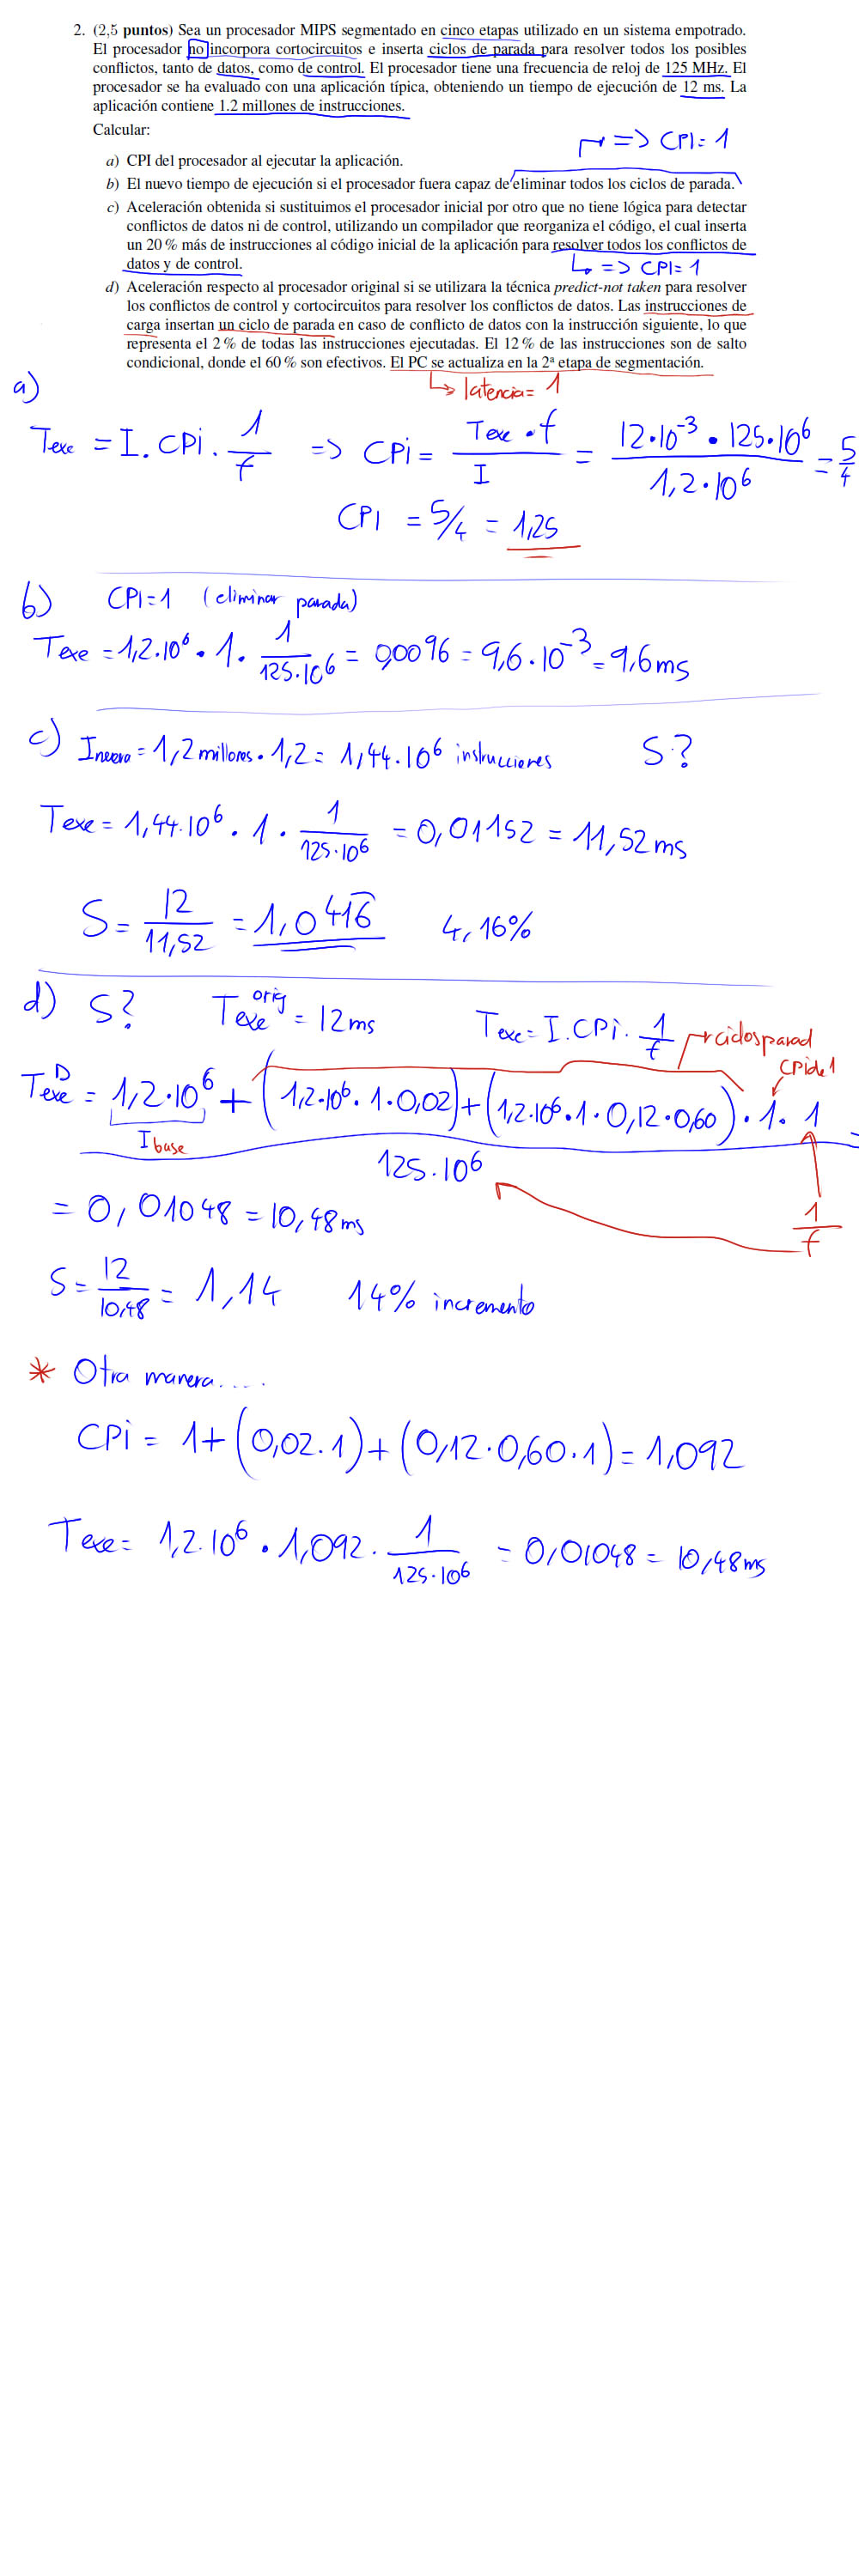 2. (2,5 puntos) Sea un procesador MIPS segmentado en cinco etapas utilizado en un sistema empotrado.
El procesador no incorpora cortocircuitos e inserta ciclos de parada para resolver todos los posibles
conflictos, tanto de datos, como de control. El procesador tiene una frecuencia de reloj de 125 MHz. El
procesador se ha evaluado con una aplicación típica, obteniendo un tiempo de ejecución de 12 ms. La
aplicación contiene 1.2 millones de instrucciones.
Calcular:
=> CPI=1
a) CPI del procesador al ejecutar la aplicación.
b) El nuevo tiempo de ejecución si el procesador fuera capaz de eliminar todos los ciclos de parada.
c) Aceleración obtenida si sustituimos el procesador inicial por otro que no tiene lógica para detectar
conflictos de datos ni de control, utilizando un compilador que reorganiza el código, el cual inserta
un 20 % más de instrucciones al código inicial de la aplicación para resolver todos los conflictos de
datos y de control.
=> CPI=1
d) Aceleración respecto al procesador original si se utilizara la técnica predict-not taken para resolver
los conflictos de control y cortocircuitos para resolver los conflictos de datos. Las instrucciones de
carga insertan un ciclo de parada en caso de conflicto de datos con la instrucción siguiente, lo que
representa el 2 % de todas las instrucciones ejecutadas. El 12 % de las instrucciones son de salto
condicional, donde el 60 % son efectivos. El PC se actualiza en la 2ª etapa de segmentación.
latencia= 1
a)
Texe = I. CPi. 1/f => CPi = Texe · f / I = 12·10^-3 · 125·10^6 / 1,2·10^6 = 5/4
CPI = 5/4 = 1,25
b) CPI=1 (eliminar parada)
Texe = 1,2·10^6 · 1 · 1/125·10^6 = 0,0096 = 9,6·10^-3 = 9,6ms
c) Inuevo = 1,2 millones · 1,2 = 1,44·10^6 instrucciones S?
Texe = 1,44·10^6 · 1 · 1/125·10^6 = 0,01152 = 11,52ms
S = 12/11,52 = 1,0416 4,16%
d) S? Texe^orig = 12ms Texe = I.CPi. 1/f
ciclos parad
CPI de 1
Texe^D = 1,2·10^6 + (1,2·10^6 · 1 · 0,02) + (1,2·10^6 · 1 · 0,12 · 0,60) · 1 · 1 =
I base
125·10^6
= 0,01048 = 10,48ms
1/f
S = 12/10,48 = 1,14 14% incremento
* Otra manera....
CPi = 1+(0,02·1)+(0,12·0,60·1) = 1,092
Texe = 1,2·10^6 · 1,092 · 1/125·10^6 = 0,01048 = 10,48ms